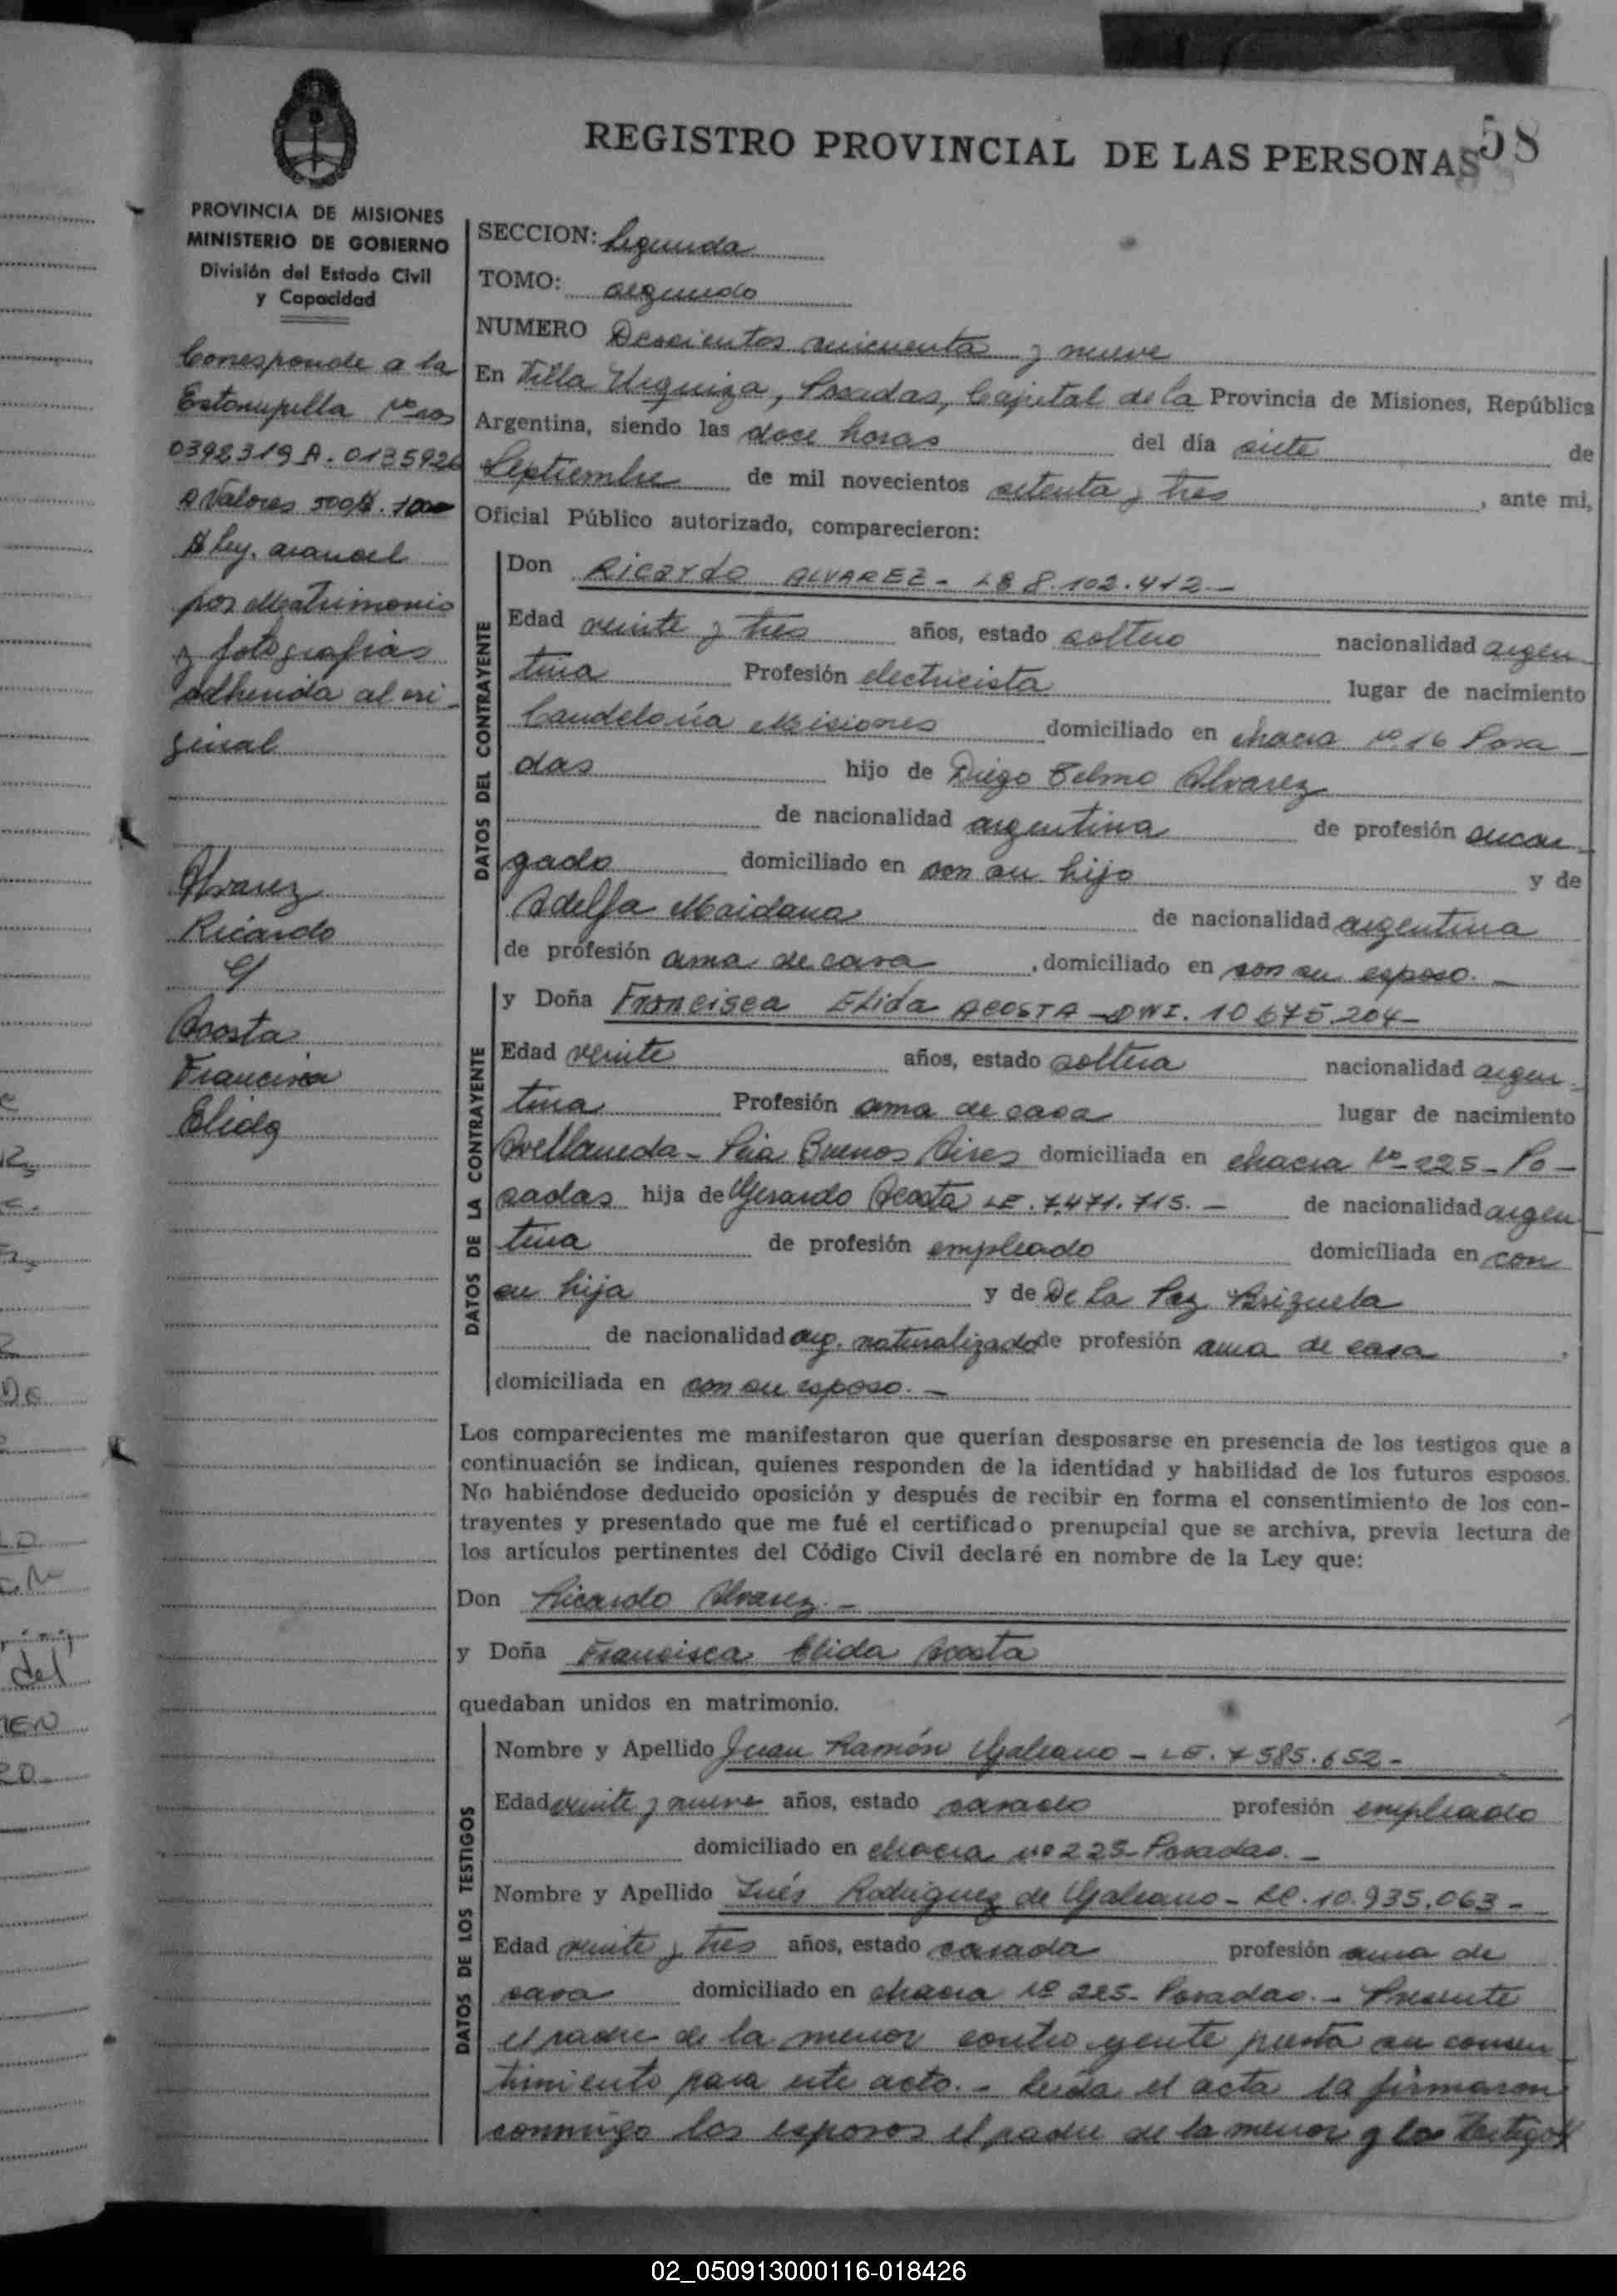 58
REGISTRO PROVINCIAL DE LAS PERSONAS
PROVINCIA DE MISIONES
MINISTERIO DE GOBIERNO
División del Estado Civil
y Capacidad
Corresponde a la
Estampilla Nros
0398319 A. 0135926
A Valores 500$. 1000
$ Ley. arancel
por Matrimonio
y fotografias
adherida al ori-
ginal
Alvarez
Ricardo
c/
Acosta
Francisca
Elida
SECCION: Segunda
TOMO: segundo
NUMERO Doscientos cincuenta y nueve
En Villa Urquiza, Posadas, Capital de la Provincia de Misiones, República
Argentina, siendo las doce horas del día siete de
Septiembre de mil novecientos setenta y tres, ante mi,
Oficial Público autorizado, comparecieron:
DATOS DEL CONTRAYENTE
Don Ricardo ALVAREZ - LE 8.102.412.-
Edad veinte y tres años, estado soltero nacionalidad argen-
tina Profesión electricista lugar de nacimiento
Candelaria Misiones domiciliado en chacra No.16 Posa-
das hijo de Diego Telmo Alvarez
de nacionalidad argentina de profesión encar-
gado domiciliado en con su hijo y de
Adelfa Maidana de nacionalidad argentina
de profesión ama de casa, domiciliado en con su esposo.-
DATOS DE LA CONTRAYENTE
y Doña Francisca Elida ACOSTA - DNI. 10.675.204-
Edad veinte años, estado soltera nacionalidad argen-
tina Profesión ama de casa lugar de nacimiento
Avellaneda - Pcia Buenos Aires domiciliada en chacra No-225- Po-
sadas hija de Gerardo Acosta LE. 7.471.715.- de nacionalidad argen
tina de profesión empleado domiciliada en con
su hija y de De La Paz Brizuela
de nacionalidad arg. naturalizado de profesión ama de casa,
domiciliada en con su esposo.-
Los comparecientes me manifestaron que querían desposarse en presencia de los testigos que a
continuación se indican, quienes responden de la identidad y habilidad de los futuros esposos.
No habiéndose deducido oposición y después de recibir en forma el consentimiento de los con-
trayentes y presentado que me fué el certificado prenupcial que se archiva, previa lectura de
los artículos pertinentes del Código Civil declaré en nombre de la Ley que:
Don Ricardo Alvarez.-
y Doña Francisca Elida Acosta
quedaban unidos en matrimonio.
DATOS DE LOS TESTIGOS
Nombre y Apellido Juan Ramón Galeano - LE. 7585.652-
Edad veinte y nueve años, estado casado profesión empleado
domiciliado en chacra no 225- Posadas.-
Nombre y Apellido Inés Rodriguez de Galeano - LC. 10.935.063-
Edad veinte y tres años, estado casada profesión ama de
casa domiciliado en chacra No 225- Posadas.- Presente
el padre de la menor contra yente presta su consen
timiento para este acto.- Leida el acta la firmaron
conmigo los esposos el padre de la menor y los testigos
02_050913000116-018426